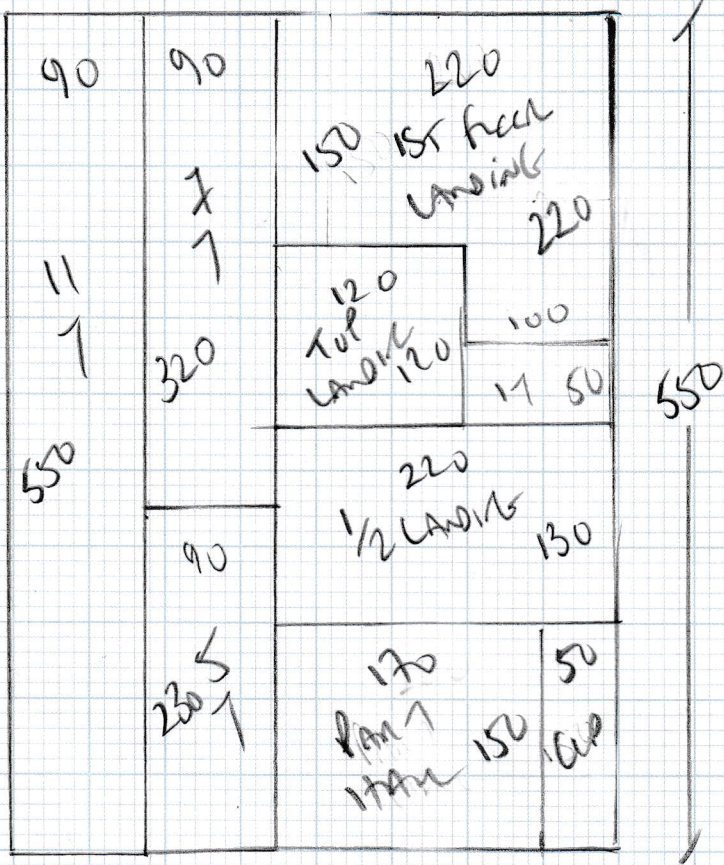 90
11
1
550
90
7
1
320
90
5
230 1
220
150 1ST FLOOR
LANDING
220
100
120
TOP
LANDING 120
1 1 50
220
1/2 LANDING
130
170
PART
HALL 150
50
CUP
550